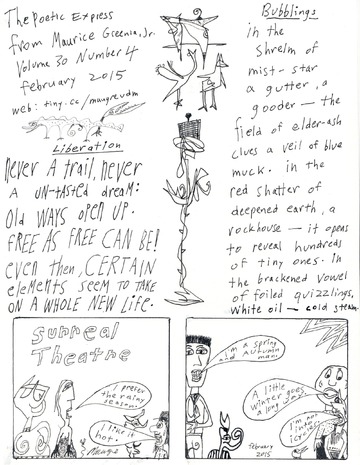 The Poetic Express
from Maurice Greenia, Jr.
Volume 30 Number 4
february 2015
web: tiny.cc/maugre.udm
Liberation
Never A trail, never
A un-tasted dream:
Old WAYS open UP.
FREE AS FREE CAN BE!
even then, CERTAIN
elements seem to TAKE
ON A WHOLE NEW Life.
Bubblings
in the
Shrelm of
mist- star
a gutter, a
gooder — the
field of elder-ash
clues a veil of blue
muck. in the
red shatter of
deepened earth, a
rockhouse — it opens
to reveal hundreds
of tiny ones. in
the brackened vowel
of foiled quizzlings,
white oil — cold steam.
Surreal
Theatre
I prefer
the rainy
season.
I like it
hot.
Maugre
I'm a spring
and Autumn
man.
A little
winter goes
a long way.
I'm not
icicles.
february
2015